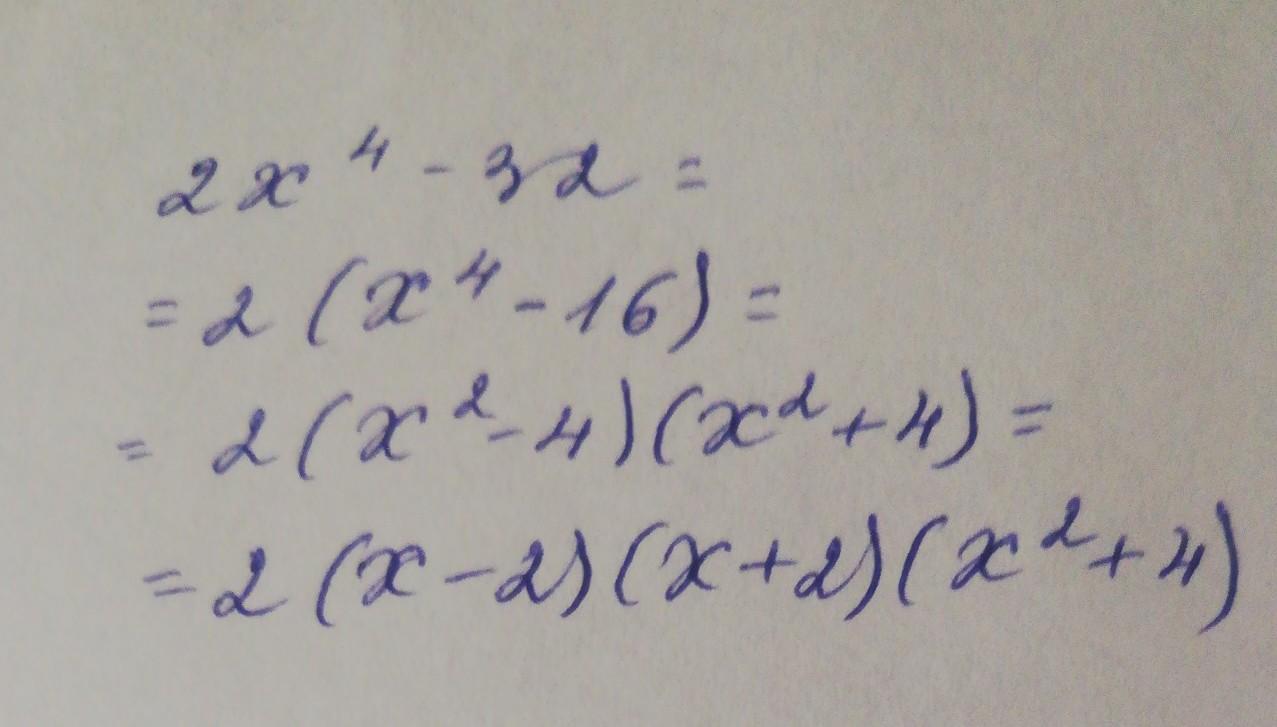 2x⁴ - 32 =
= 2 (x⁴ - 16) =
= 2 (x² - 4) (x² + 4) =
= 2 (x - 2) (x + 2) (x² + 4)